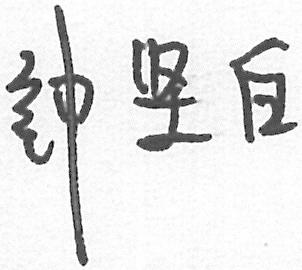 钟坚白